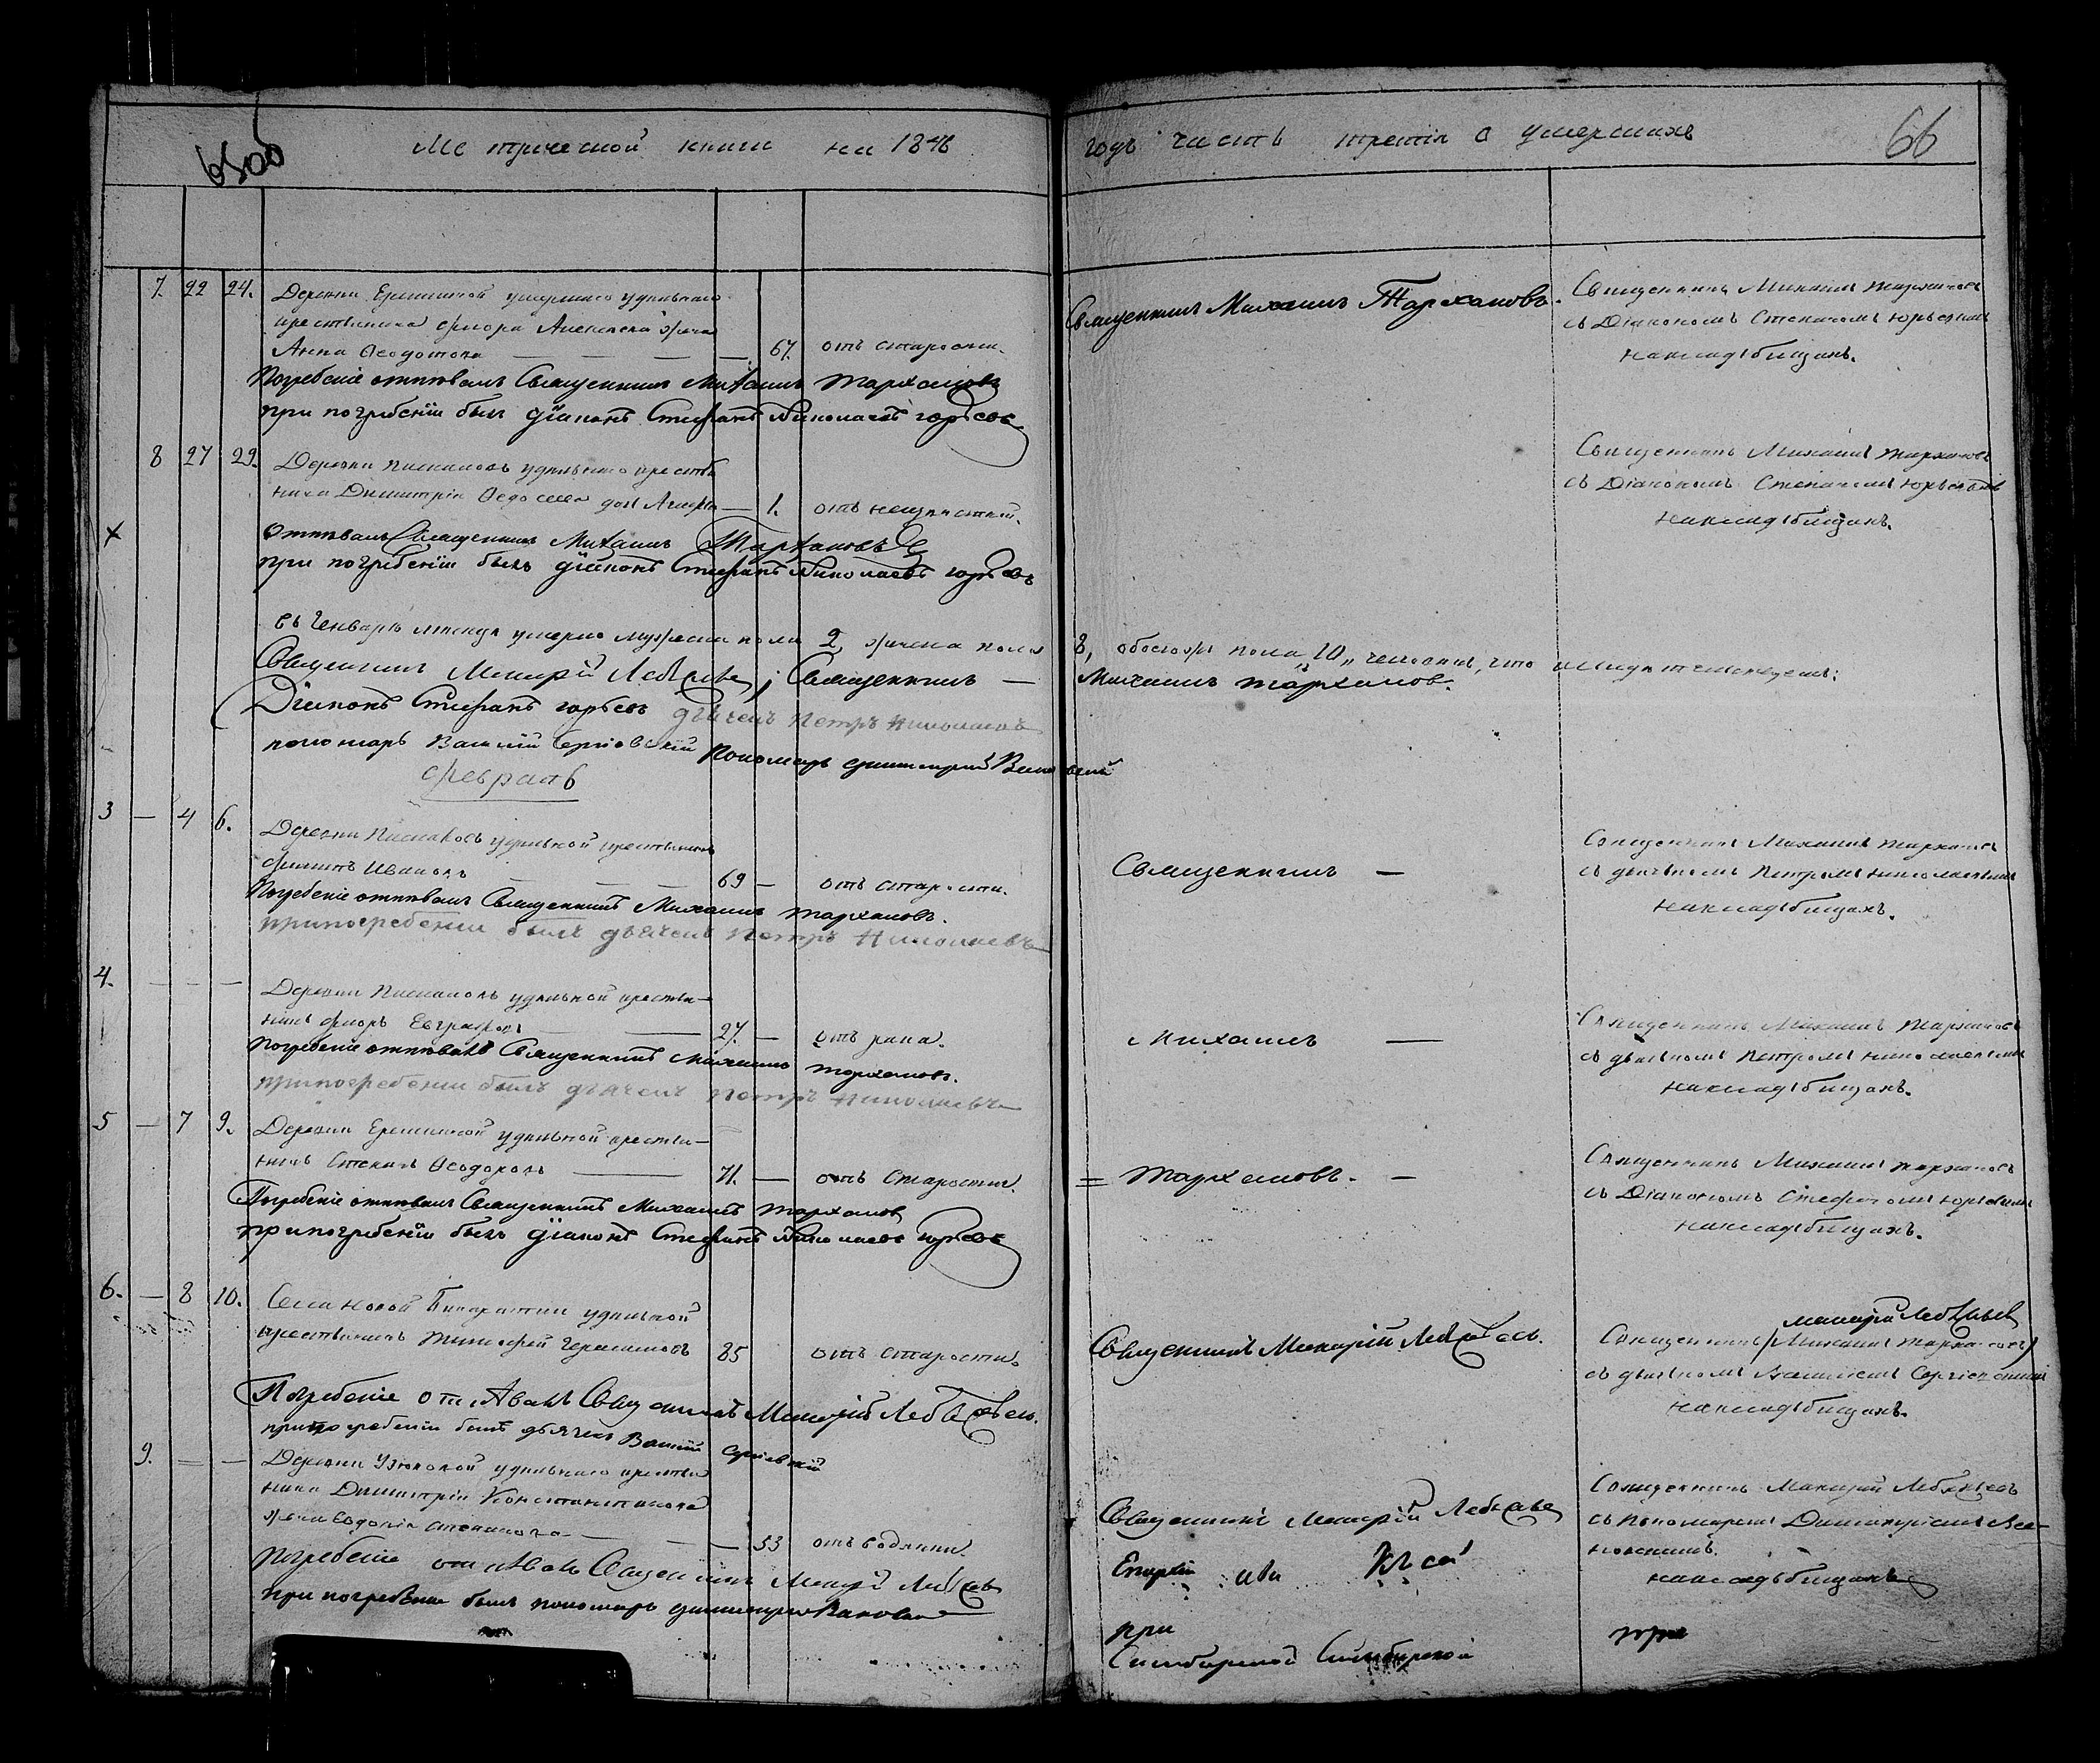 65об
Метрической книги на 1848
годъ часть третія о умершихъ
66
7. 22 24. Деревни умершаго удѣльнаго
крестьянина Флора Алексѣева жена
Анна Ѳеодотова — — — — 67. отъ старости.
Погребеніе отпѣвалъ Священникъ Михаилъ Тархановъ
при погребеніи былъ діаконъ Стефанъ Николаевъ Юрьевъ
Священникъ Михаилъ Тархановъ.
Священникъ Михаилъ Тархановъ
съ Діакономъ Стефаномъ Юрьевымъ
на кладбищѣ.
8 27 29. Деревни удѣльнаго крестья
нина Димитрія дочь — 1. отъ
Отпѣвалъ Священникъ Михаилъ Тархановъ
при погребеніи былъ діаконъ Стефанъ Николаевъ Юрьевъ
Священникъ Михаилъ Тархановъ
съ Діакономъ Стефаномъ Юрьевымъ
на кладбищѣ.
въ Генварѣ мѣсяцѣ умерло мужеска пола 2, женска пола
8, обоего пола „10„ человѣкъ, что и свидѣтельствуемъ:
Священникъ Макарій Лебяжьевъ; Священникъ —
Михаилъ Тархановъ.
Діаконъ Стефанъ Юрьевъ дьячекъ Петръ Николаевъ
пономарь Василій Сергіевскій Пономарь Димитрій
Февраль
3 — 4 6. Деревни удѣльной крестьянинъ
Филипъ Ивановъ — — — 69 — отъ старости.
Погребеніе отпѣвалъ Священникъ Михаилъ Тархановъ.
при погребеніи былъ дьячекъ Петръ Николаевъ
Священникъ —
Священникъ Михаилъ Тархановъ
съ дьячкомъ Петромъ Николаевымъ
на кладбищѣ.
4. — — — Деревни удѣльной крестья-
нинъ Флоръ Евграфовъ — — 27. — отъ рака.
Погребеніе отпѣвалъ Священникъ Михаилъ Тархановъ.
при погребеніи былъ дьячекъ Петръ Николаевъ
Михаилъ —
Священникъ Михаилъ Тархановъ
съ дьячкомъ Петромъ Николаевымъ
на кладбищѣ.
5 — 7 9. Деревни удѣльной крестья-
нинъ Степанъ Ѳеодоровъ — 71. — отъ старости.
Погребеніе отпѣвалъ Священникъ Михаилъ Тархановъ
при погребеніи былъ діаконъ Стефанъ Николаевъ Юрьевъ
= Тархановъ. —
Священникъ Михаилъ Тархановъ
съ Діакономъ Стефаномъ Юрьевымъ
на кладбищѣ.
6. — 8 10. Села Новой удѣльной
крестьянинъ Тимофей Герасимовъ 85 отъ старости.
Погребеніе отпѣвалъ Священникъ Макарій Лебяжьевъ.
при погребеніи былъ дьячекъ Василій Сергіевскій
Священникъ Макарій Лебяжьевъ.
Макарій Лебяжьевъ
Священникъ (Михаилъ Тархановъ)
съ дьячкомъ Василіемъ Сергіевскимъ
на кладбищѣ.
9. — — Деревни Узюковой удѣльнаго крестья
нина Димитрія Константинова
жена Евдокія Степанова — — — 53 отъ водянки.
Погребеніе отпѣвалъ Священникъ Макарій Лебяжьевъ
при погребеніи былъ пономарь Димитрій
Священникъ Макарій Лебяжьевъ
Священникъ Макарій Лебяжьевъ
съ пономаремъ Димитріемъ
на кладбищѣ
при
Симбирской Симбирской